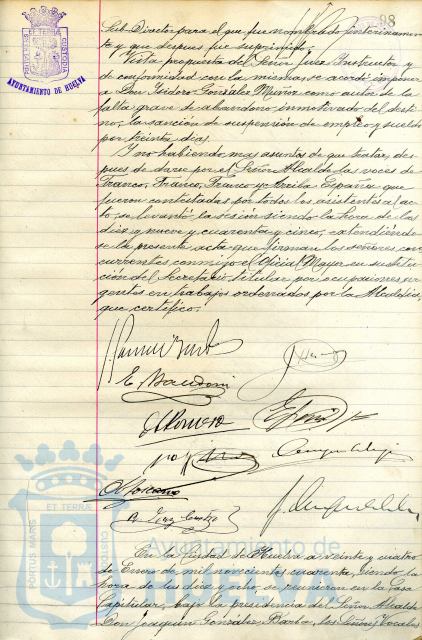 98
Sub-Director para el que fue nombrado interinamen-
te y que después fue suprimido.
Vista propuesta del Señor Juez Instructor y
de conformidad con la misma se acordó imponer
a Don Isidoro González Muñoz como autor de la
falta grave de abandono inmotivado del desti-
no, la sanción de suspensión de empleo y sueldo
por treinta días.
Y no habiendo mas asuntos de que tratar, des-
pues de darse por el Señor Alcalde las voces de
Franco, Franco, Franco y Arriba España que
fueron contestadas por todos los asistentes al ac-
to, se levantó la sesión siendo la hora de las
diez y nueve y cuarenta y cinco, extendiéndo-
se la presente acta que firman los señores con-
currentes conmigo el Oficial Mayor en sustitu-
ción del Secretario titular, por ocupaciones ur-
gentes en trabajos ordenados por la Alcaldía,
que certifico.
AYUNTAMIENTO DE HUELVA
PORTUS MARIS
ET TERRÆ
CUSTODIA
Ayuntamiento de
HUELVA
En la Ciudad de Huelva a veinte y cuatro
de Enero de mil novecientos cuarenta, siendo la
hora de las diez y ocho, se reunieron en la Casa
Capitular, bajo la presidencia del Señor Alcalde
Don Joaquín González Barba, los Señores Vocales